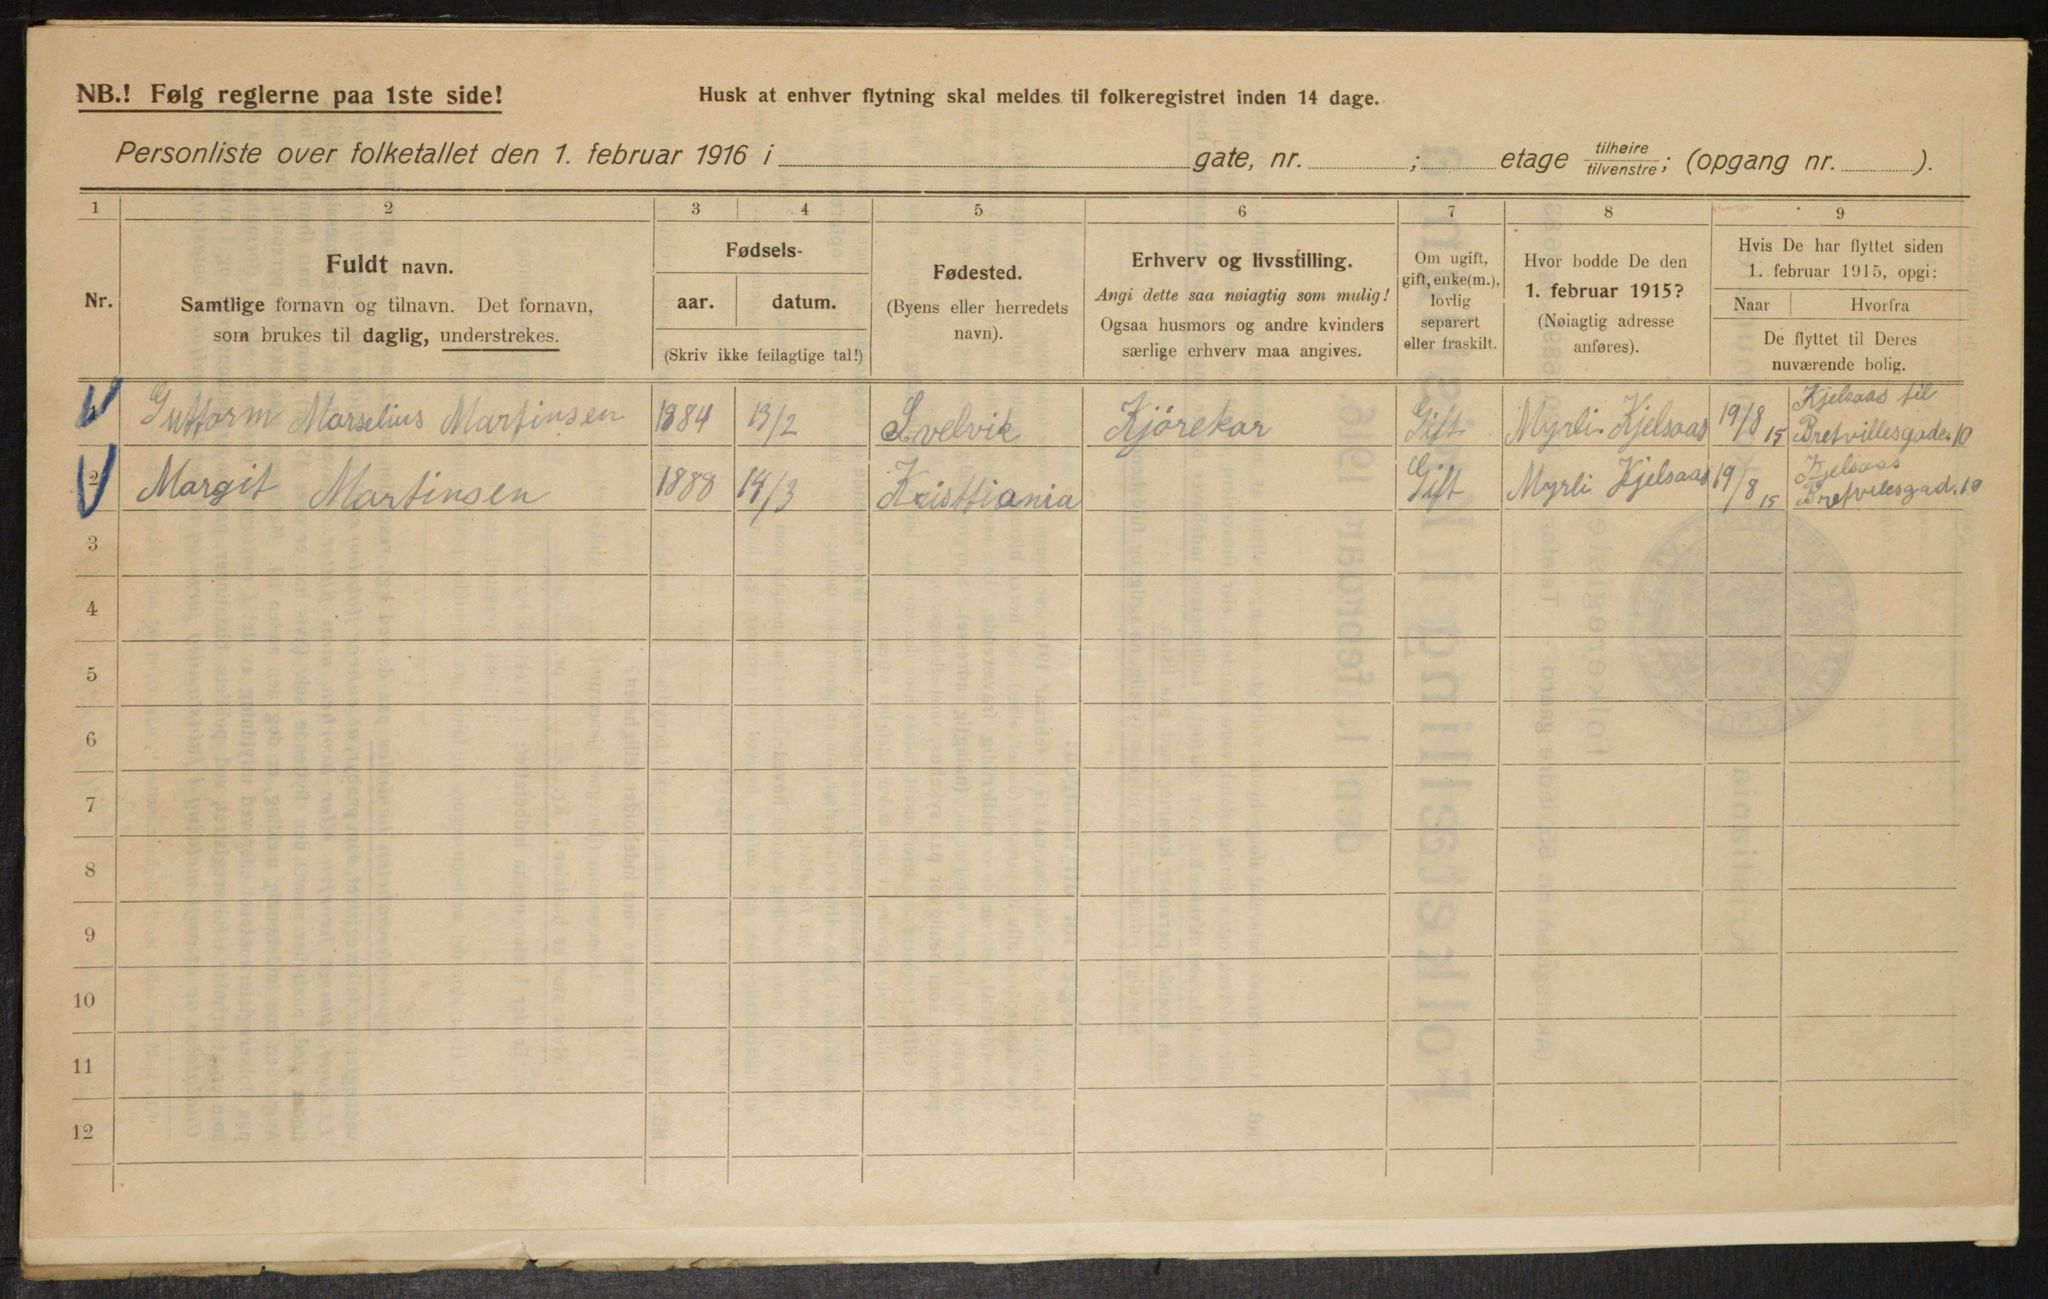 NB.! Følg reglerne paa 1ste side!
Husk at enhver flytning skal meldes til folkeregistret inden 14 dage.
Personliste over folketallet den 1. februar 1916 i gate, nr. ; etage tilhøire/tilvenstre; (opgang nr. ).
1 2 3 4 5 6 7 8 9
Nr.
Fuldt navn.
Samtlige fornavn og tilnavn. Det fornavn,
som brukes til daglig, understrekes.
Fødsels-
aar. datum.
(Skriv ikke feilagtige tal!)
Fødested.
(Byens eller herredets
navn).
Erhverv og livsstilling.
Angi dette saa nøiagtig som mulig!
Ogsaa husmors og andre kvinders
særlige erhverv maa angives.
Om ugift,
gift, enke(m.),
lovlig
separert
eller fraskilt.
Hvor bodde De den
1. februar 1915?
(Nøiagtig adresse
anføres).
Hvis De har flyttet siden
1. februar 1915, opgi:
Naar Hvorfra
De flyttet til Deres
nuværende bolig.
1 Guttorm Marselius Martinsen 1884 13/2 Svelvik Kjörekar Gift Myrli Kjelsaas 19/8 15 Kjelsaas til
Bretvillesgade. 10
2 Margit Martinsen 1888 14/3 Kristtiania Gift Myrli Kjelsaas 19/8 15 Kjelsaas
Bretvilesgad. 10
3
4
5
6
7
8
9
10
11
12